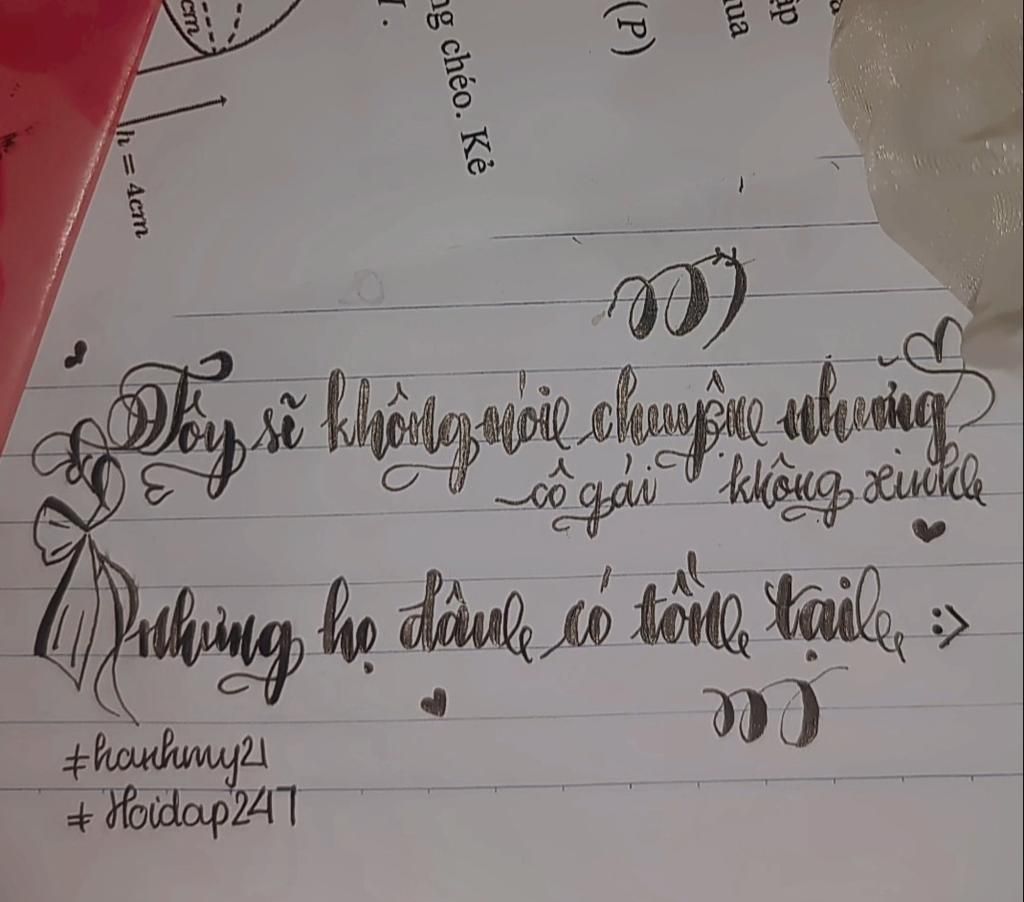 cm
h = 4cm
ng chéo. Kẻ
I.
(P)
qua
ập
Tôy sẽ không nói chuyện những
cô gái không xinh
nhưng họ đâu có tồn tại :>
#hanhmy21
#Hoidap247